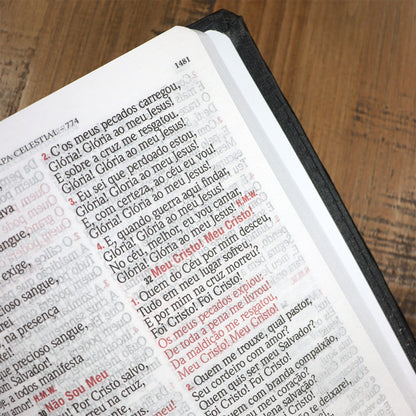 1481
PA CELESTIAL - 774
ava
sangue,
exige,
cioso sangue,
, na presença
precioso sangue,
Salvador!
a, a todos manifesta
H.M.W.
Não Sou Meu
! Foi Cristo salvo,
na cruz,
2. C'os meus pecados carregou,
Glória! Glória ao meu Jesus!
E sobre a cruz me resgatou.
Glória! Glória ao meu Jesus!
3. Eu sei que perdoado estou,
Glória! Glória ao meu Jesus!
E, com certeza, ao céu vou!
Glória! Glória ao meu Jesus!
4. E, quando guerra aqui findar,
Glória! Glória ao meu Jesus!
No céu, melhor, eu vou cantar,
Glória! Glória ao meu Jesus! H.M.W.
32 Meu Cristo! Meu Cristo!
1. Quem do Céu por mim desceu,
Tudo em meu lugar sofreu,
E por mim na cruz morreu?
Foi Cristo! Foi Cristo!
Os meus pecados expiou;
De toda a pena me livrou!
Da maldição me resgatou,
Meu Cristo! Meu Cristo!
2. Quem me trouxe, qual pastor,
Seu cordeiro com amor?
Quem quis ser meu Salvador?
Foi Cristo! Foi Cristo!
Quem com branda compaixão,
meu coração?
salvação?
Foi Cristo!